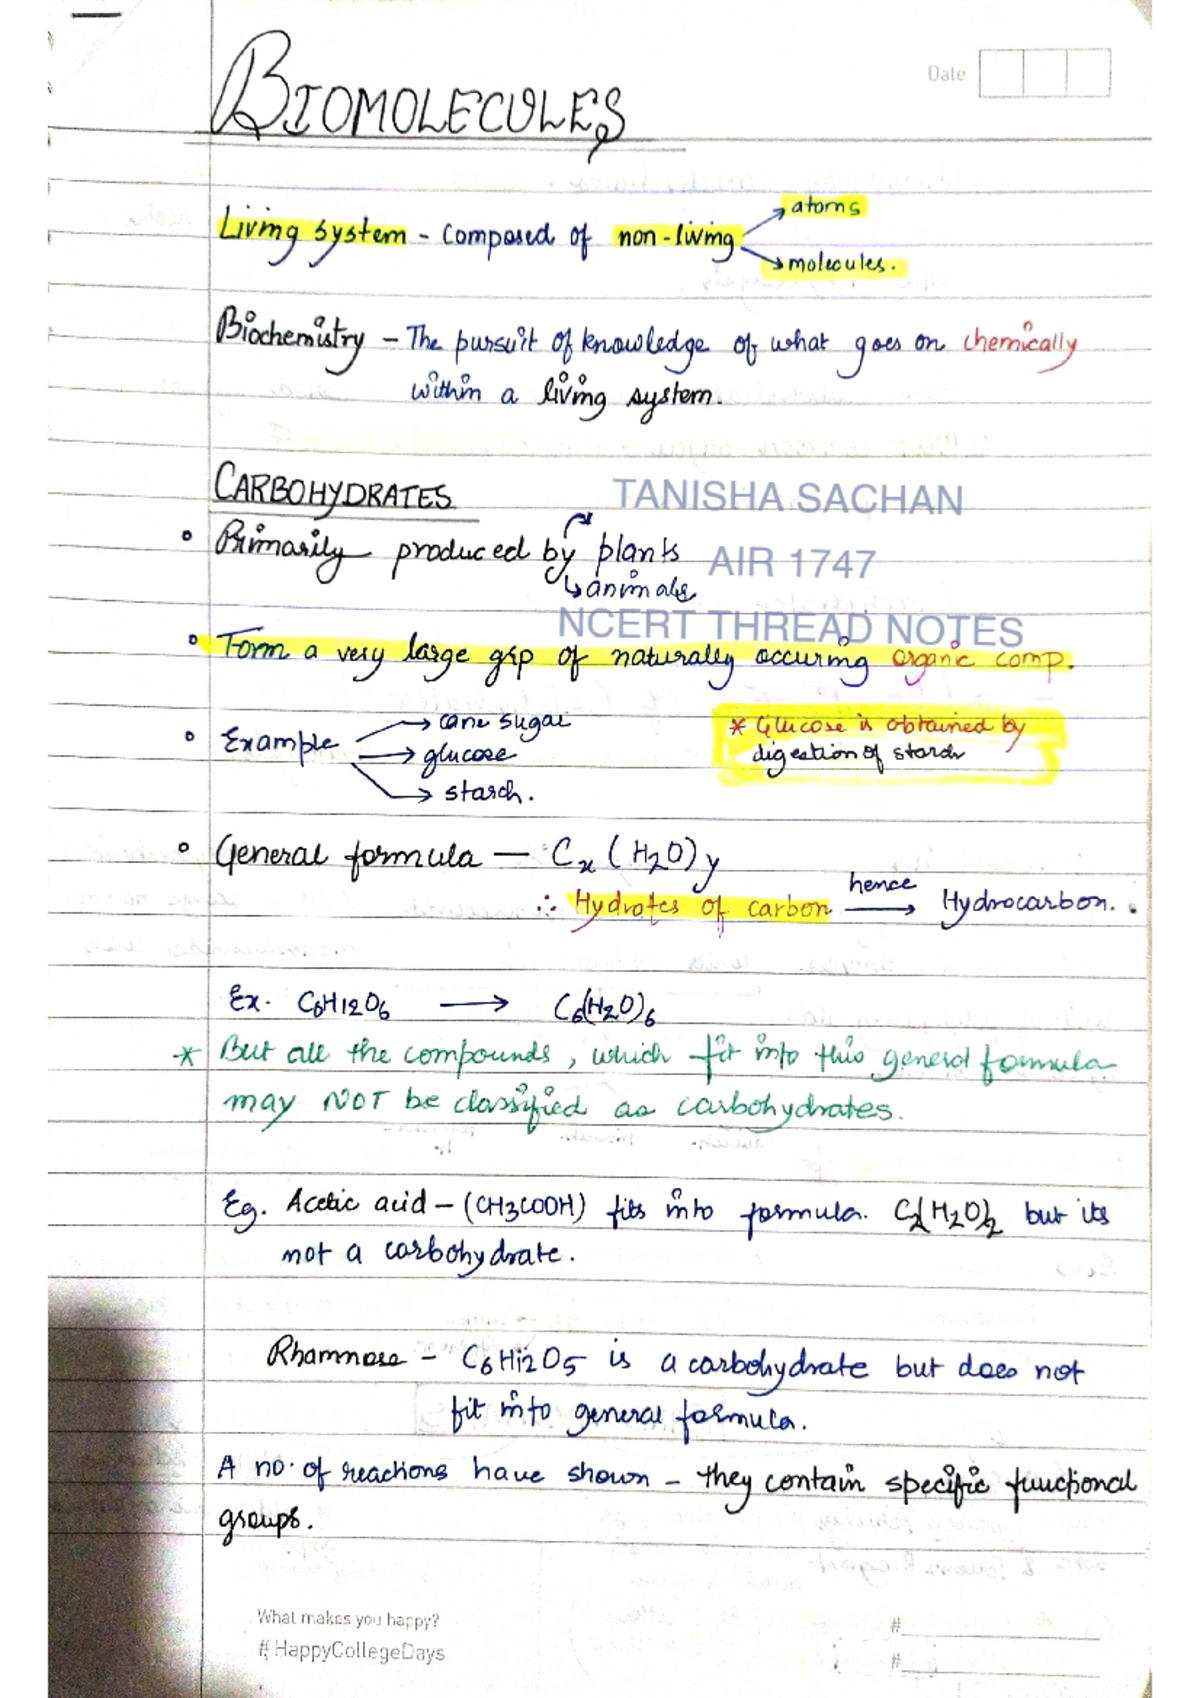 Date
BIOMOLECULES
Living system - composed of non-living → atoms
→ molecules.
Biochemistry - The pursuit of knowledge of what goes on chemically
within a living system.
CARBOHYDRATES
TANISHA SACHAN
• Primarily produced by plants
AIR 1747
↳ animals
NCERT THREAD NOTES
• Form a very large grp of naturally occuring organic comp.
• Example → cane sugar
→ glucose
→ starch.
* Glucose is obtained by
digestion of starch
• General formula — Cx (H2O)y
∴ Hydrates of carbon hence → Hydrocarbon.
Ex. C6H12O6 → C6(H2O)6
* But all the compounds, which fit into this general formula
may NOT be classified as carbohydrates.
Eg. Acetic acid - (CH3COOH) fits into formula. C2(H2O)2 but its
not a carbohydrate.
Rhamnose - C6H12O5 is a carbohydrate but does not
fit into general formula.
A no. of reactions have shown - they contain specific functional
groups.
What makes you happy?
# HappyCollegeDays
#
#